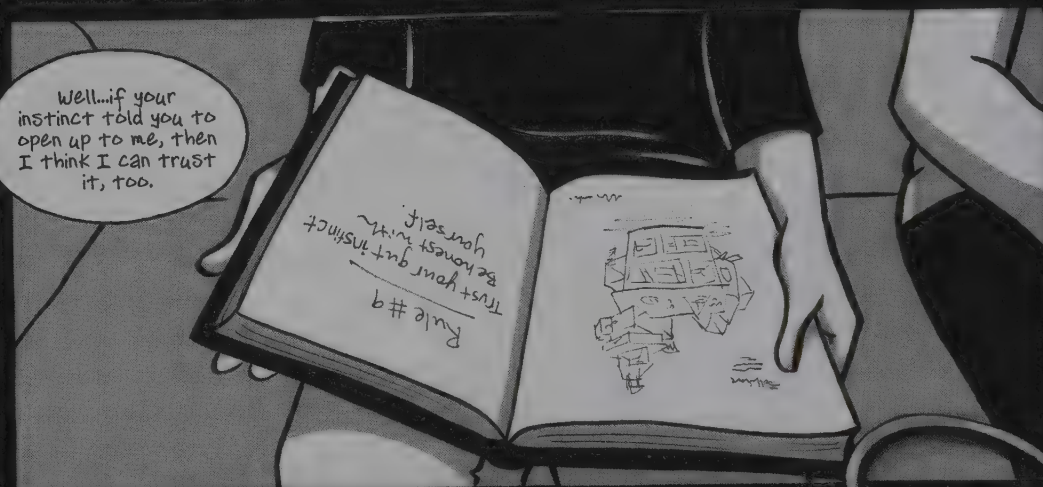 Well...if your
instinct told you to
open up to me, then
I think I can trust
it, too.
Rule #9
Trust your gut instinct
Be honest with
yourself.